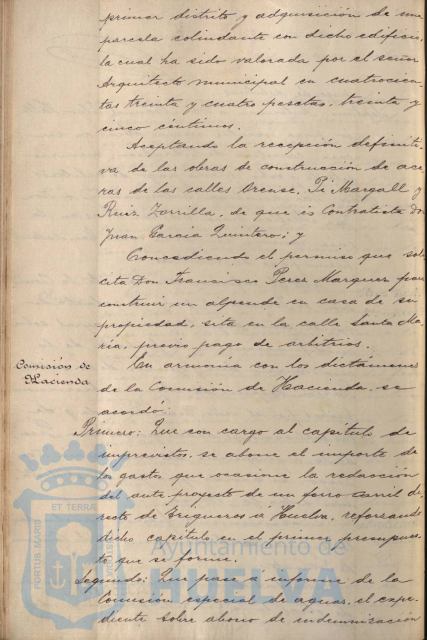 primer distrito y adquisición de una
parcela colindante con dicho edificio,
la cual ha sido valorada por el señor
Arquitecto municipal en cuatrocien-
tas treinta y cuatro pesetas, treinta y
cinco céntimos.
Aceptando la recepción definiti-
va de las obras de construcción de ace-
ras de las calles Orense, Pi Margall y
Ruiz Zorrilla, de que es Contratista Don
Juan García Quintero; y
Concediendo el permiso que soli-
cita Don Francisco Perez Marquez para
construir un alpende en casa de su
propiedad, sita en la calle Santa Ma-
ría, previo pago de arbitrios.
Comisión de
Hacienda
En armonía con los dictámenes
de la Comisión de Hacienda, se
acordó:
Primero: Que con cargo al capítulo de
imprevistos, se abone el importe de
los gastos que ocasione la redacción
del ante proyecto de un ferro carril di-
recto de Zrigueros á Huelva, reforzando
dicho capítulo en el primer presupues-
to que se forme.
Segundo: Que pase a informe de la
Comisión especial de aguas, el expe-
diente sobre abono de indemnización
PORTUS MARIS
ET TERRAE
Ayuntamiento de
HUELVA